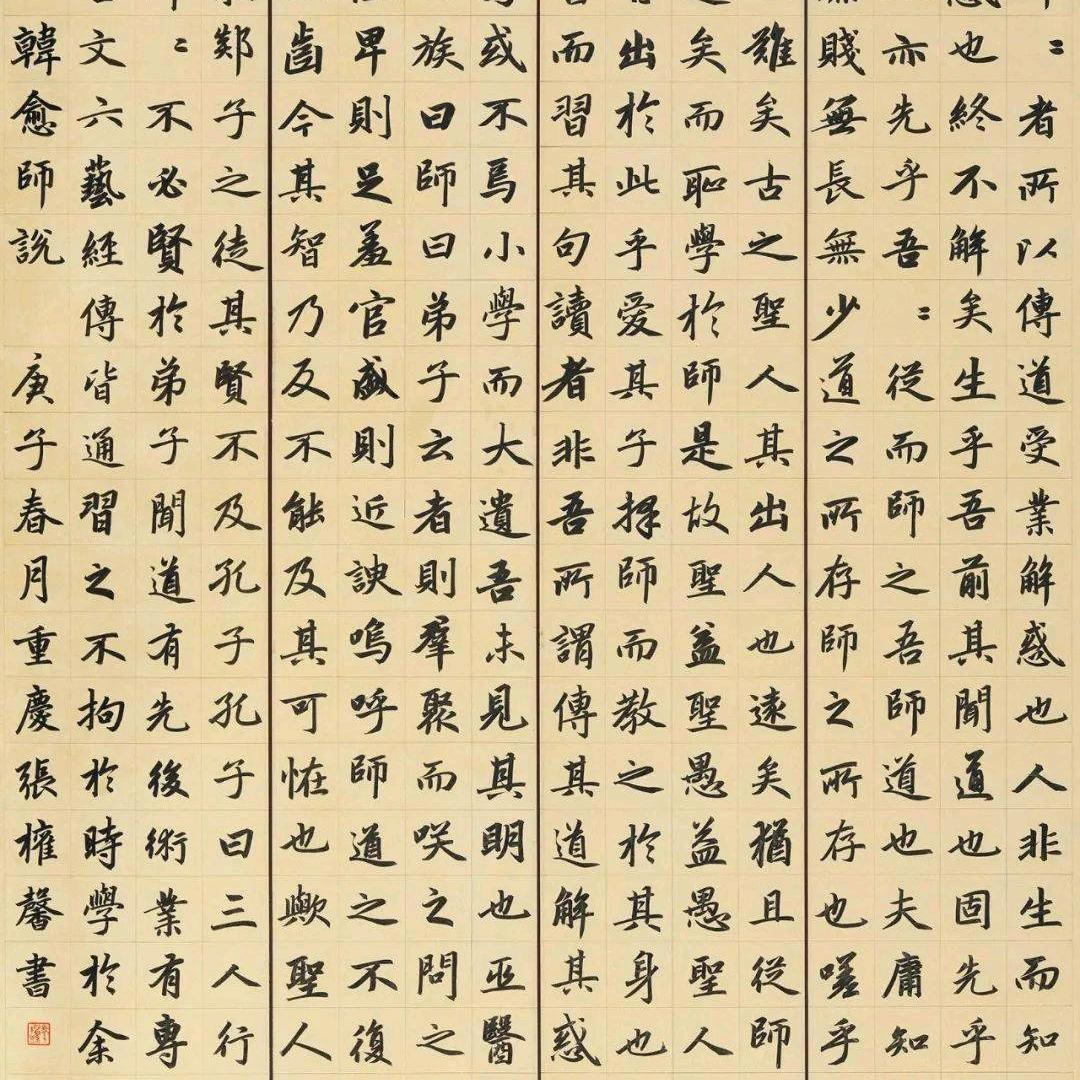 〻者所以傳道受業解惑也人非生而知
也終不解矣生乎吾前其聞道也固先乎
亦先乎吾〻從而師之吾師道也夫庸知
賤無長無少道之所存師之所存也嗟乎
難矣古之聖人其出人也遠矣猶且從師
矣而恥學於師是故聖益聖愚益愚聖人
出於此乎愛其子擇師而教之於其身也
而習其句讀者非吾所謂傳其道解其惑
或不焉小學而大遺吾未見其明也巫醫
族曰師曰弟子云者則羣聚而咲之問之
卑則足羞官盛則近諛嗚呼師道之不復
齒今其智乃反不能及其可恠也歟聖人
郯子之徒其賢不及孔子孔子曰三人行
〻不必賢於弟子聞道有先後術業有專
文六藝經傳皆通習之不拘於時學於余
韓愈師說 庚子春月重慶張馨書